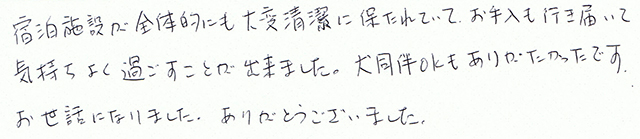 宿泊施設が全体的にも大変清潔に保たれていて、お手入も行き届いて
気持ちよく過ごすことが出来ました。犬同伴OKもありがたかったです。
お世話になりました。ありがとうございました。